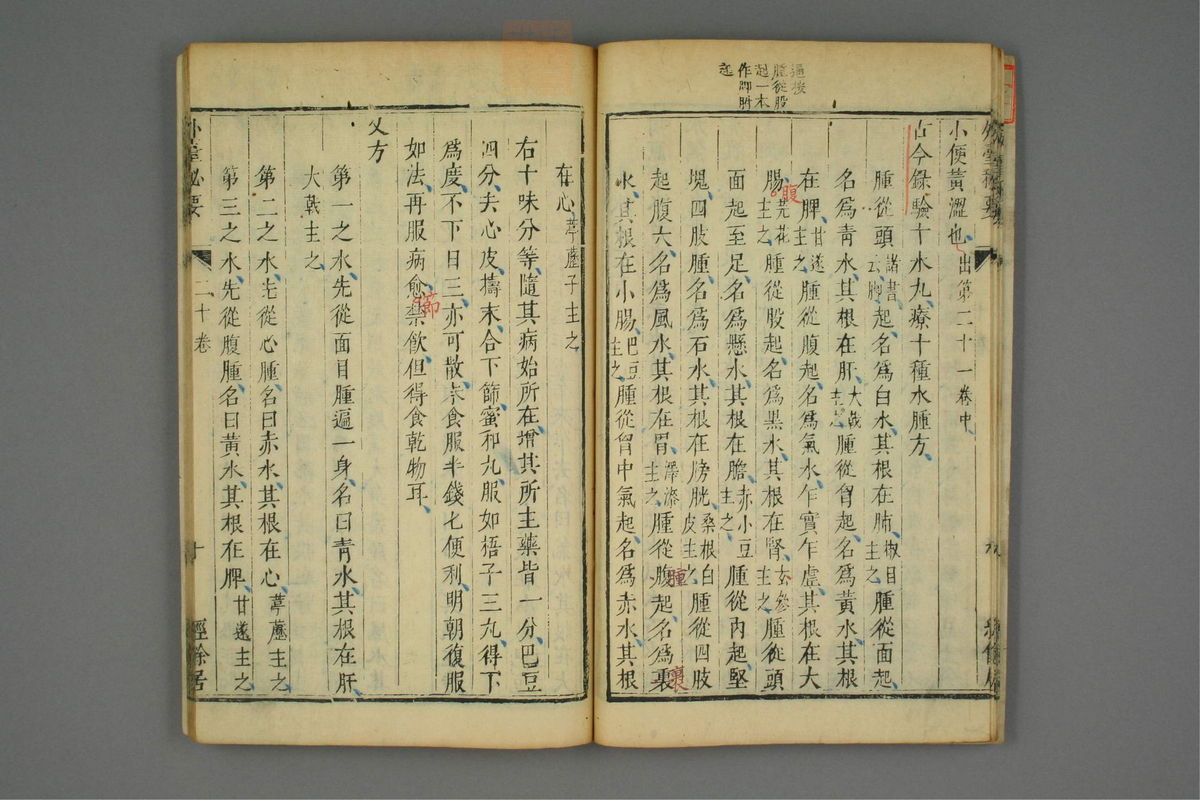 逼按
腫從股
起一本
作脚胕
起
小便黃澀也出第二十一卷中
古今録驗十水丸療十種水腫方
腫從頭諸書云脚起名爲白水其根在肺椒目主之腫從面起
名爲靑水其根在肝大戟主之腫從胷起名爲黃水其根
在脾甘遂主之腫從腹起名爲氣水乍實乍虛其根在大
腸芫花主之腫從股起名爲黑水其根在腎玄參主之腫從頭
腹
面起至足名爲懸水其根在膽赤小豆主之腫從內起堅
塊四肢腫名爲石水其根在膀胱桑根白皮主之腫從四肢
起腹大名爲風水其根在胃澤漆主之腫從腹起名爲裹
腫
裏
水其根在小腸巴豆主之腫從胷中氣起名爲赤水其根
外臺秘要
二十卷
十
經餘居
在心葶藶子主之
右十味分等隨其病始所在增其所主藥皆一分巴豆
四分去心皮擣末合下篩蜜和丸服如梧子三丸得下
爲度不下日三亦可散未食服半錢匕便利明朝復服
如法再服病愈藥飲但得食乾物耳
節
又方
第一之水先從面目腫遍一身名曰靑水其根在肝
大戟主之
第二之水先從心腫名曰赤水其根在心葶藶主之
第三之水先從腹腫名曰黃水其根在脾甘遂主之